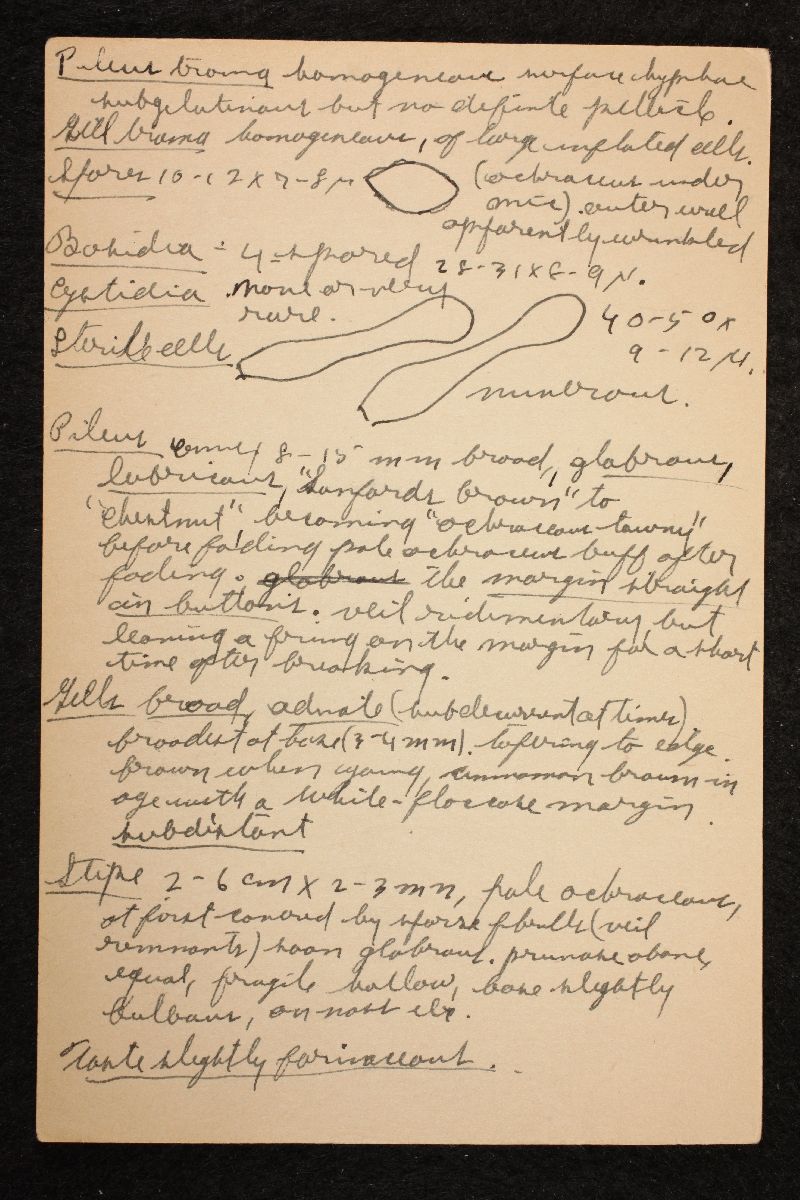 Pileus trama homogeneous surface hyphae
subgelatinous but no definite pellicle.
Gill trama homogeneous, of large inflated cells.
Spores 10-12 x 7-8 µ (ochraceous under
mic). outer wall
apparently wrinkled
Basidia - 4-spored 28-31 x 8-9 µ.
Cystidia none or very
rare.
Sterile cells 40-50 x
9-12 µ.
numerous.
Pileus convex 8-15 mm broad, glabrous,
lubricous, "Sanfords brown" to
"chestnut", becoming "ochraceous-tawny"
before fading pale ochraceous buff after
fading. glabrous the margin straight
in buttons. veil rudimentary but
leaving a fring on the margin for a short
time after breaking.
Gills broad, adnate (subdecurrent at times)
broadest at base (3-4 mm). tapering to edge.
brown when young, cinnamon brown in
age with a white-floccose margin.
subdistant
Stipe 2-6 cm x 2-3 mm, pale ochraceous,
at first covered by sparse fibrills (veil
remnants) soon glabrous. pruinose above,
equal, fragile hollow, base slightly
bulbous, or not so.
Taste slightly farinaceous.